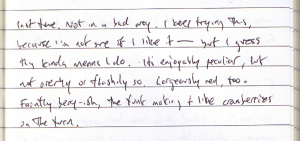 last time. Not in a bad way. I keep trying this,
because I'm not sure if I like it — but I guess
that kinda means I do. It's enjoyably peculiar, but
not overtly or flashily so. Gorgeously red, too.
Faintly berry-ish, the tart making it like cranberries
on the turn.